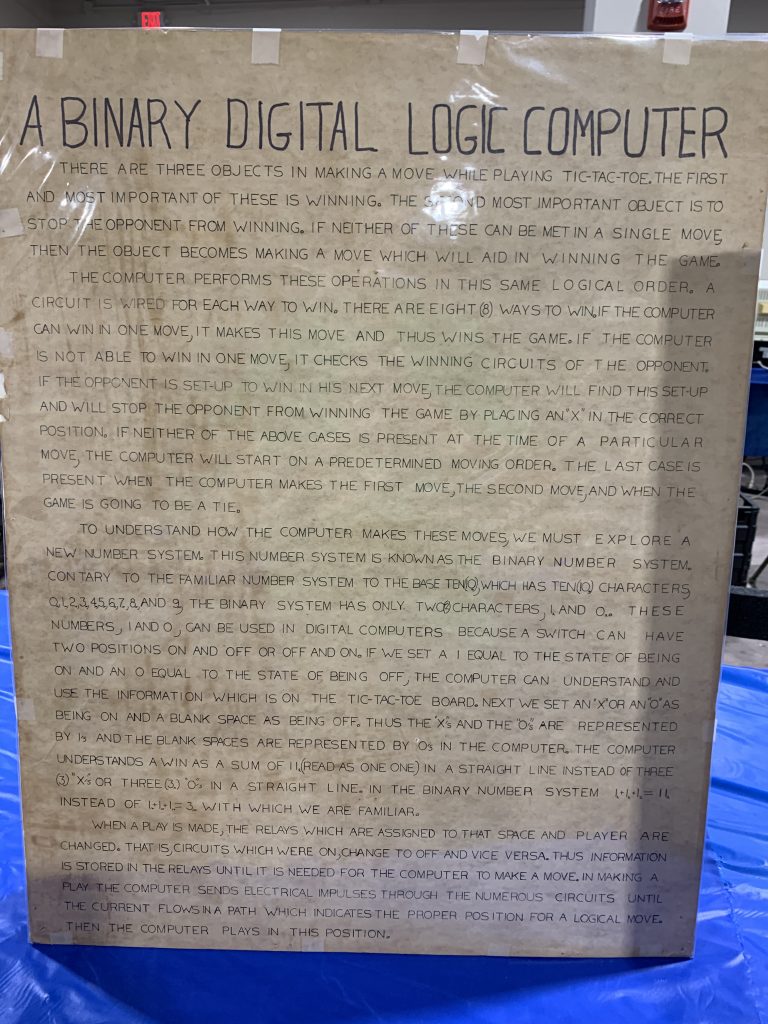 EXIT
FIRE
A BINARY DIGITAL LOGIC COMPUTER
THERE ARE THREE OBJECTS IN MAKING A MOVE WHILE PLAYING TIC-TAC-TOE. THE FIRST
AND MOST IMPORTANT OF THESE IS WINNING. THE SECOND MOST IMPORTANT OBJECT IS TO
STOP THE OPPONENT FROM WINNING. IF NEITHER OF THESE CAN BE MET IN A SINGLE MOVE,
THEN THE OBJECT BECOMES MAKING A MOVE WHICH WILL AID IN WINNING THE GAME.
THE COMPUTER PERFORMS THESE OPERATIONS IN THIS SAME LOGICAL ORDER. A
CIRCUIT IS WIRED FOR EACH WAY TO WIN. THERE ARE EIGHT (8) WAYS TO WIN. IF THE COMPUTER
CAN WIN IN ONE MOVE, IT MAKES THIS MOVE AND THUS WINS THE GAME. IF THE COMPUTER
IS NOT ABLE TO WIN IN ONE MOVE, IT CHECKS THE WINNING CIRCUITS OF THE OPPONENT.
IF THE OPPONENT IS SET-UP TO WIN IN HIS NEXT MOVE, THE COMPUTER WILL FIND THIS SET-UP
AND WILL STOP THE OPPONENT FROM WINNING THE GAME BY PLACING AN "X" IN THE CORRECT
POSITION. IF NEITHER OF THE ABOVE CASES IS PRESENT AT THE TIME OF A PARTICULAR
MOVE, THE COMPUTER WILL START ON A PREDETERMINED MOVING ORDER. THE LAST CASE IS
PRESENT WHEN THE COMPUTER MAKES THE FIRST MOVE, THE SECOND MOVE, AND WHEN THE
GAME IS GOING TO BE A TIE.
TO UNDERSTAND HOW THE COMPUTER MAKES THESE MOVES, WE MUST EXPLORE A
NEW NUMBER SYSTEM. THIS NUMBER SYSTEM IS KNOWN AS THE BINARY NUMBER SYSTEM.
CONTARY TO THE FAMILIAR NUMBER SYSTEM TO THE BASE TEN(10), WHICH HAS TEN(10) CHARACTERS,
0,1,2,3,4,5,6,7,8, AND 9, THE BINARY SYSTEM HAS ONLY TWO(2) CHARACTERS, 1, AND 0.. THESE
NUMBERS, 1 AND 0, CAN BE USED IN DIGITAL COMPUTERS BECAUSE A SWITCH CAN HAVE
TWO POSITIONS ON AND OFF OR OFF AND ON. IF WE SET A 1 EQUAL TO THE STATE OF BEING
ON AND AN 0 EQUAL TO THE STATE OF BEING OFF, THE COMPUTER CAN UNDERSTAND AND
USE THE INFORMATION WHICH IS ON THE TIC-TAC-TOE BOARD. NEXT WE SET AN "X" OR AN "O" AS
BEING ON AND A BLANK SPACE AS BEING OFF. THUS THE "X"s AND THE "O"s ARE REPRESENTED
BY 1s AND THE BLANK SPACES ARE REPRESENTED BY 0s IN THE COMPUTER. THE COMPUTER
UNDERSTANDS A WIN AS A SUM OF 11.(READ AS ONE ONE) IN A STRAIGHT LINE INSTEAD OF THREE
(3.) "X"s OR THREE (3.) "O"s IN A STRAIGHT LINE. IN THE BINARY NUMBER SYSTEM 1.+1.+1.= 11.
INSTEAD OF 1.+1.+1.= 3. WITH WHICH WE ARE FAMILIAR.
WHEN A PLAY IS MADE, THE RELAYS WHICH ARE ASSIGNED TO THAT SPACE AND PLAYER ARE
CHANGED. THAT IS, CIRCUITS WHICH WERE ON, CHANGE TO OFF AND VICE VERSA. THUS INFORMATION
IS STORED IN THE RELAYS UNTIL IT IS NEEDED FOR THE COMPUTER TO MAKE A MOVE. IN MAKING A
PLAY THE COMPUTER SENDS ELECTRICAL IMPULSES THROUGH THE NUMEROUS CIRCUITS UNTIL
THE CURRENT FLOWS IN A PATH WHICH INDICATES THE PROPER POSITION FOR A LOGICAL MOVE.
THEN THE COMPUTER PLAYS IN THIS POSITION.